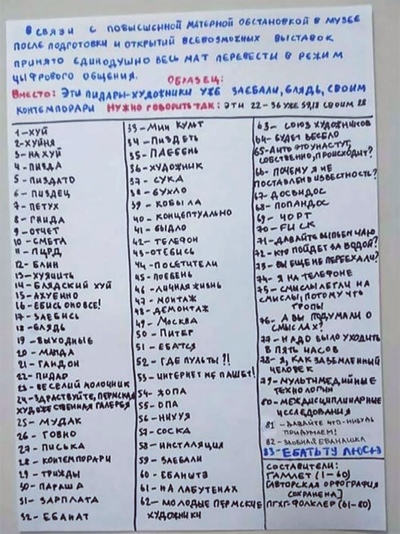 В связи с повышенной матерной обстановкой в музее
после подготовки и открытий всевозможных выставок
принято единодушно весь мат перевести в режим
цифрового общения. Образец:
Вместо: эти пидары-художники уже заебали, блядь, своим
контемпорари Нужно говорить так: эти 22-36 уже 59,18 своим 28
1-хуй
2-хуйня
3-нахуй
4-пизда
5-пиздато
6-пиздец
7-петух
8-гнида
9-отчёт
10-смета
11-пидр
12-блин
13-хуячить
14-блядский хуй
15-ахуенно
16-ебись оно всё!
17-заебись
18-блядь
19-выходные
20-манда
21-гандон
22-пидар
23-весёлый молочник
24-здравствуйте, пермская
художественная галерея
25-мудак
26-говно
27-писька
28-контемпорари
29-трижды
30-параша
31-зарплата
32-ебанат
33-Мин культ
34-пиздеть
35-паебень
36-художник
37-сука
38-бухло
39-кобыла
40-концептуально
41-быдло
42-телефон
43-отебись
44-посетители
45-поебень
46-личная жизнь
47-монтаж
48-демонтаж
49-Москва
50-Питер
51-ебатся
52-где пульты?!!
53-интернет не пашет!
54-жопа
55-опа
56-нихуя
57-соска
58-инсталяция
59-заебали
60-ебаныто
61-на лабутенах
62-молодые пермские
художники
63-союз художников
64-будет весело
65-а что это у нас тут,
собственно, происходит?
66-почему я не
поставлен в известность?
67-досвидос
68-попандос
69-чорт
70-fuck
71-давайте выпьем чаю
72-кто пойдёт за водой?
73-вы ещё не переехали?
74-я на телефоне
75-смыслы легли на
смыслы, потому что
тропы!
76-а вы подумали о
смыслах?
77-надо было уходить
в пять часов
78-я, как заземлённый
человек
79-мультимедийные
технологии
80-междисциплинарные
исследования
81-давайте что-нибудь
придумаем!
82-злобная ебанашка
83-ебать ту Люсю
Составители:
Гамлет (1-60)
[авторская орфография
сохранена]
ПГХГ-фолклер (61-80)